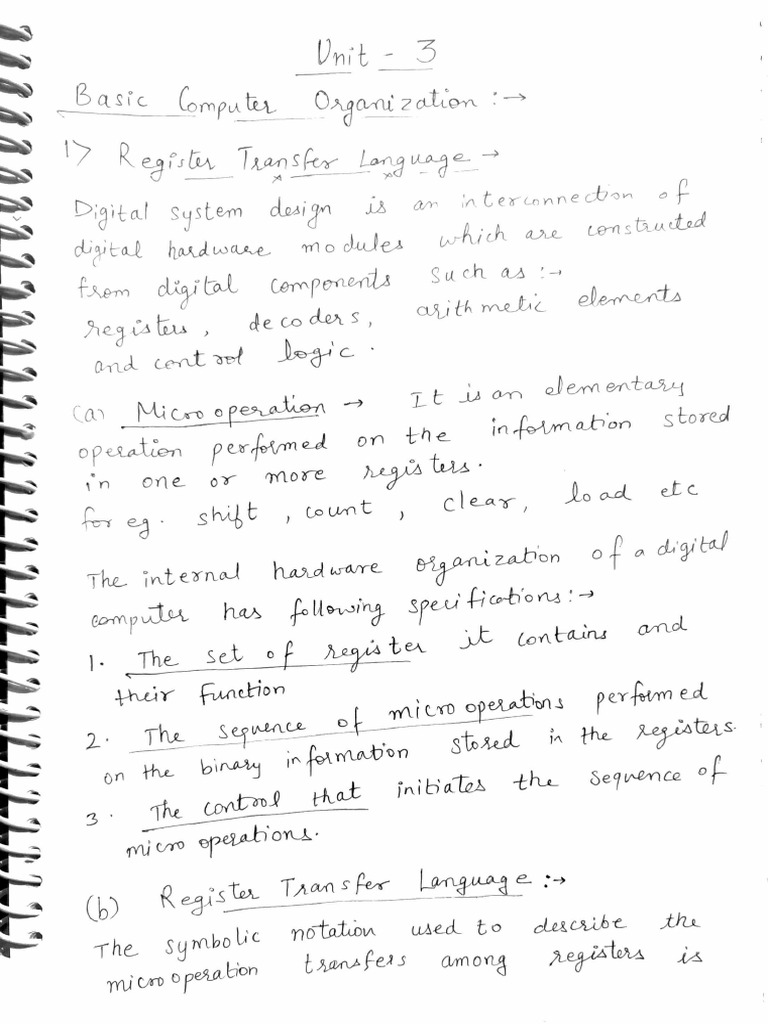 Unit - 3
Basic Computer Organization :→
1> Register Transfer Language →
Digital system design is an interconnection of
digital hardware modules which are constructed
from digital components such as :→
registers, decoders, arithmetic elements
and control logic.
(a) Micro operation → It is an elementary
operation performed on the information stored
in one or more registers.
for eg. shift, count, clear, load etc
The internal hardware organization of a digital
computer has following specifications :→
1. The set of register it contains and
their function
2. The sequence of micro operations performed
on the binary information stored in the registers.
3. The control that initiates the sequence of
micro operations.
(b) Register Transfer Language :→
The symbolic notation used to describe the
micro operation transfers among registers is